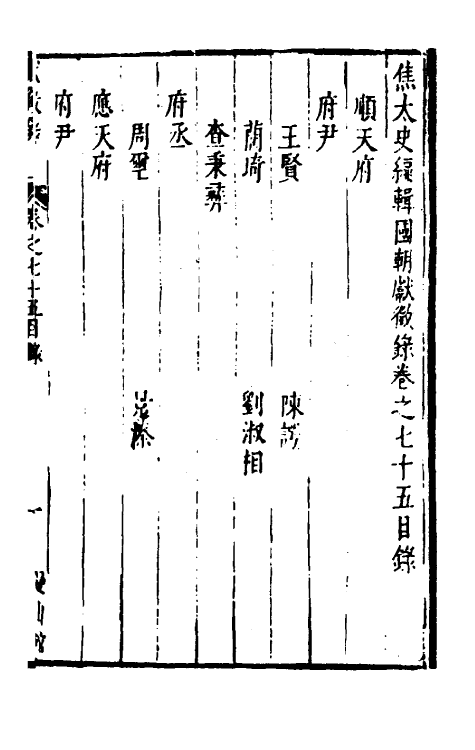 焦太史編輯國朝獻徵錄卷之七十五目錄
順天府
府尹
王賢 陳
藺琦 劉淑相
查秉彝
府丞
周璽
應天府
府尹
獻徵錄 卷之七十五目錄 一 曼山館